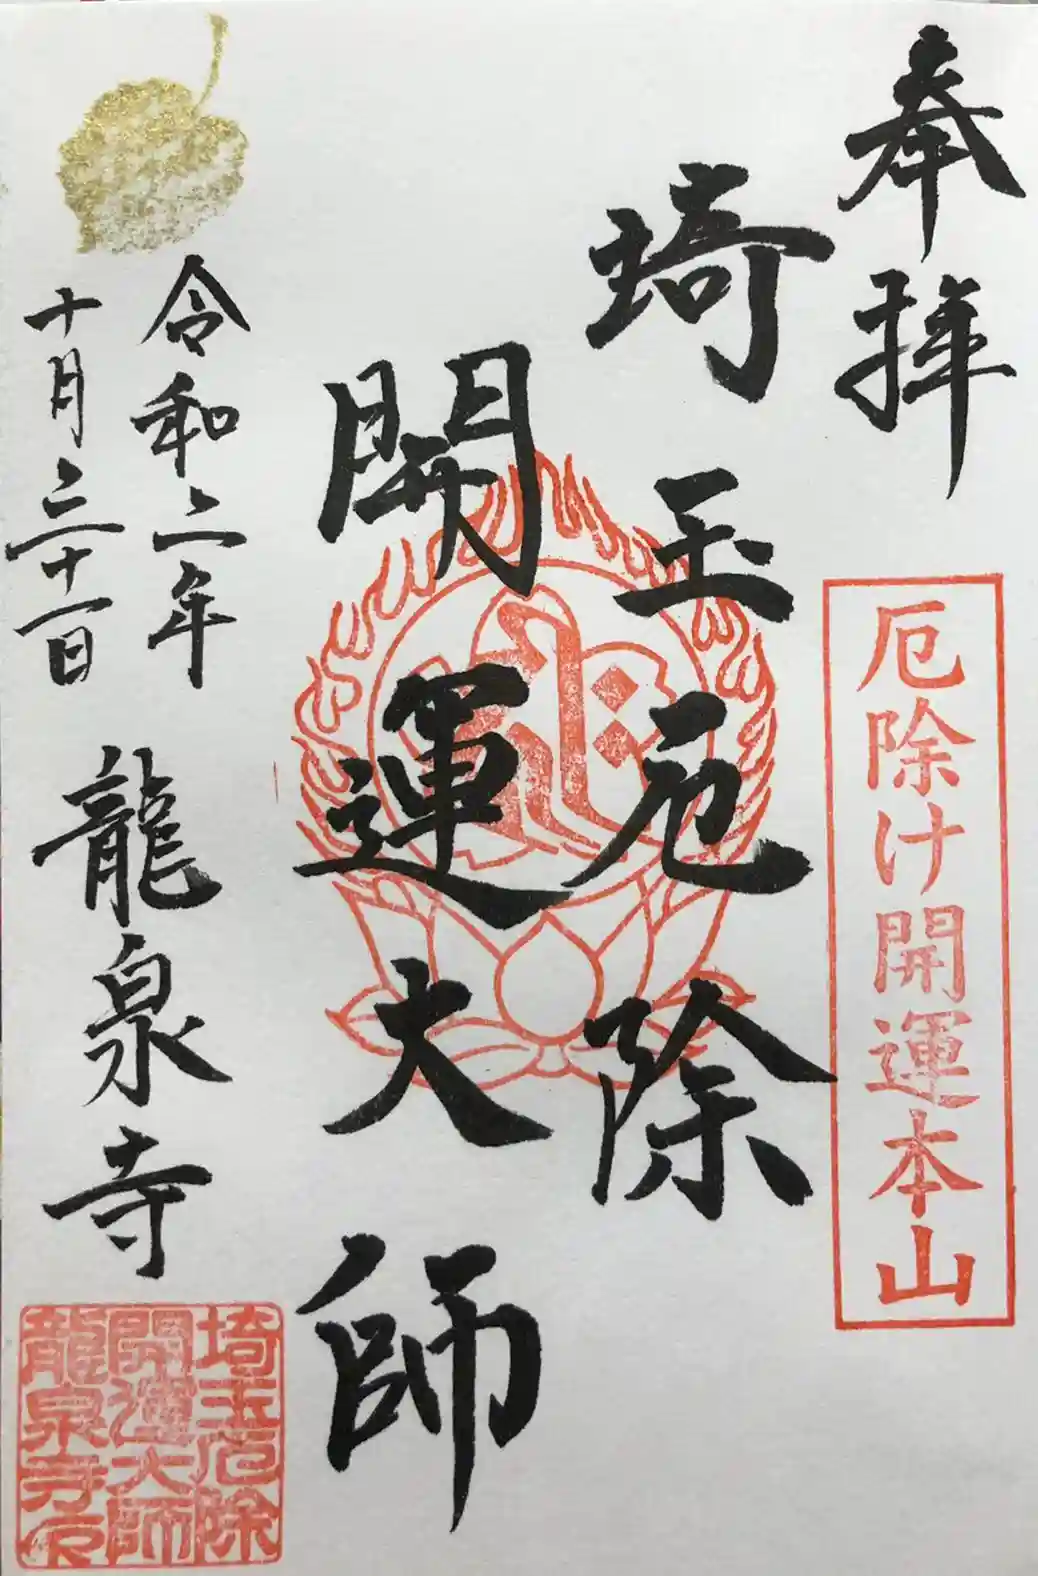 奉拝
厄除け開運本山
埼玉厄除
開運大師
令和二年
十月三十一日
龍泉寺
埼玉厄除
開運大師
龍泉寺